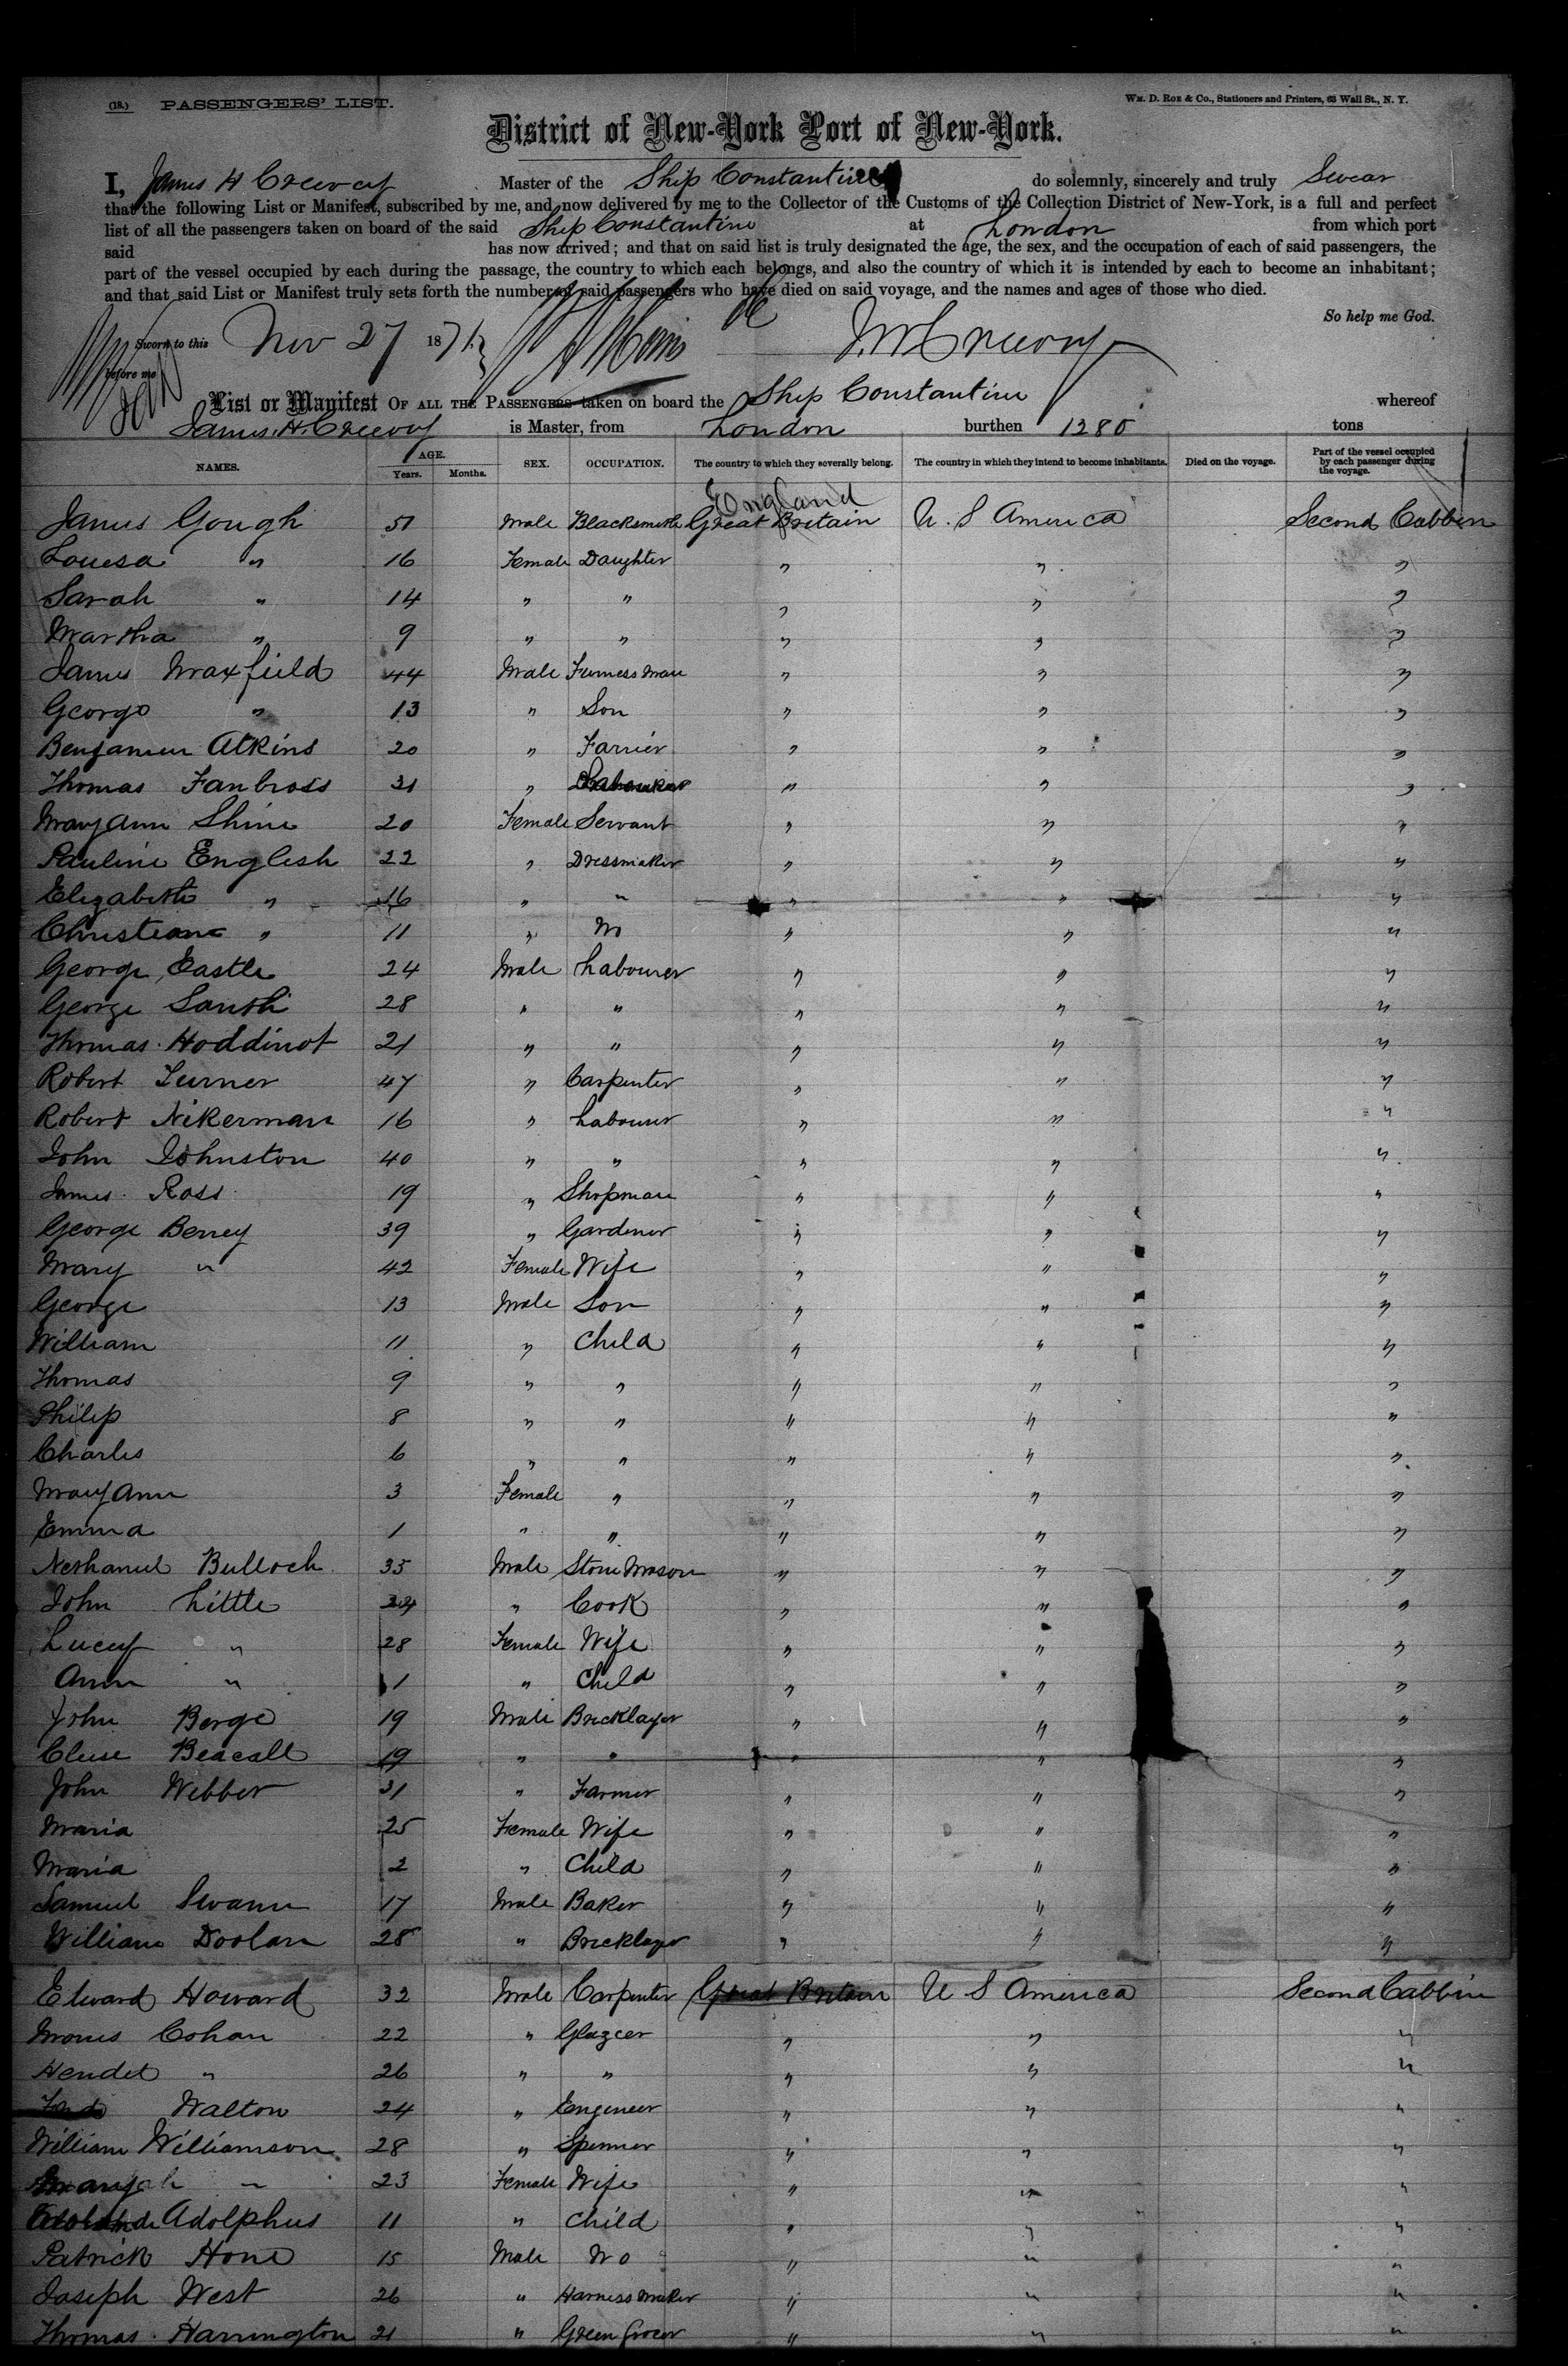 (18.) PASSENGERS' LIST. Wm. D. Roe & Co., Stationers and Printers, 63 Wall St., N. Y.
District of New-York Port of New-York.
I, James H Creevoy Master of the Ship Constantine do solemnly, sincerely and truly Swear
that the following List or Manifest, subscribed by me, and now delivered by me to the Collector of the Customs of the Collection District of New-York, is a full and perfect
list of all the passengers taken on board of the said Ship Constantine at London from which port
said has now arrived; and that on said list is truly designated the age, the sex, and the occupation of each of said passengers, the
part of the vessel occupied by each during the passage, the country to which each belongs, and also the country of which it is intended by each to become an inhabitant;
and that said List or Manifest truly sets forth the number of said passengers who have died on said voyage, and the names and ages of those who died.
So help me God.
Sworn to this Nov 27 1871
before me
List or Manifest OF ALL THE PASSENGERS taken on board the Ship Constantine whereof
James H. Creevoy is Master, from London burthen 1280 tons
NAMES. AGE. Years. Months. SEX. OCCUPATION. The country to which they severally belong. The country in which they intend to become inhabitants. Died on the voyage. Part of the vessel occupied by each passenger during the voyage.
England
James Gough 51 Male Blacksmith Great Britain U. S America Second Cabbin
Louesa " 16 Female Daughter " " "
Sarah " 14 " " " " "
Martha " 9 " " " " "
James Maxfield 44 Male Furness Man " " "
George " 13 " Son " " "
Benjamin Atkins 20 " Farrier " " "
Thomas Fanbross 31 " " " "
Mary Ann Shine 20 Female Servant " " "
Pauline English 22 " Dressmaker " " "
Elizabeth " 16 " " " " "
Christiana " 11 " No " " "
George Eastle 24 Male Labourer " " "
George 28 " " " " "
Thomas Hoddinot 21 " " " " "
Robert Turner 47 " Carpenter " " "
Robert Nikerman 16 " Labourer " " "
John Johnston 40 " " " " "
James Ross 19 " Shopman " " "
George Berrey 39 " Gardener " " "
Mary " 42 Female Wife " " "
George 13 Male Son " " "
William 11 " Child " " "
Thomas 9 " " " " "
Philip 8 " " " " "
Charles 6 " " " " "
Mary Ann 3 Female " " " "
Emma 1 " " " " "
Nethaniel Bulloch 35 Male Stone Mason " " "
John Little 34 " Cook " " "
Lucey " 28 Female Wife " " "
Ann " 1 " Child " " "
John Berge 19 Male Bricklayer " " "
Beacall 19 " " " " "
John Webber 31 " Farmer " " "
Maria 25 Female Wife " " "
Maria 2 " Child " " "
Samuel Swann 17 Male Baker " " "
William Doolan 28 " Bricklayer " " "
Edward Howard 32 Male Carpenter Great Britain U S America Second Cabbin
Morris Cohan 22 " Glazeer " " "
Hendet " 26 " " " " "
Walton 24 " Engineer " " "
William Williamson 28 " Spinner " " "
" 23 Female Wife " " "
Adolphus 11 " Child " " "
Patrick Hone 15 Male No " " "
Joseph West 26 " Harness Maker " " "
Thomas Harrington 21 " Green Grocer " " "